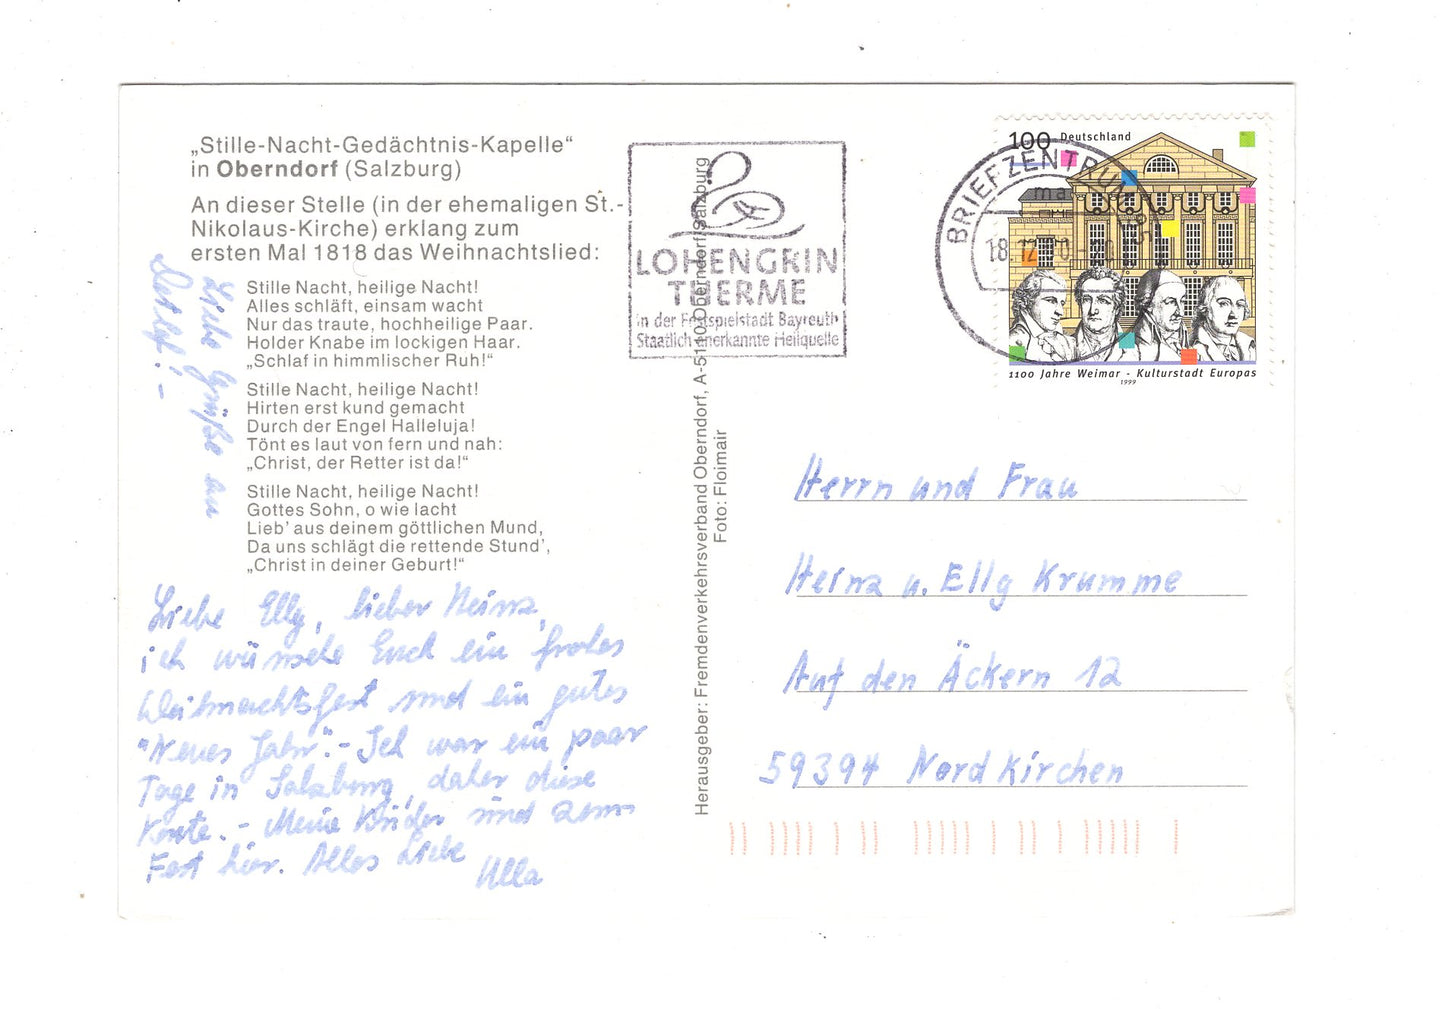 „Stille-Nacht-Gedächtnis-Kapelle“
in Oberndorf (Salzburg)
An dieser Stelle (in der ehemaligen St.-
Nikolaus-Kirche) erklang zum
ersten Mal 1818 das Weihnachtslied:
Stille Nacht, heilige Nacht!
Alles schläft, einsam wacht
Nur das traute, hochheilige Paar.
Holder Knabe im lockigen Haar.
„Schlaf in himmlischer Ruh!“
Stille Nacht, heilige Nacht!
Hirten erst kund gemacht
Durch der Engel Halleluja!
Tönt es laut von fern und nah:
„Christ, der Retter ist da!“
Stille Nacht, heilige Nacht!
Gottes Sohn, o wie lacht
Lieb’ aus deinem göttlichen Mund,
Da uns schlägt die rettende Stund’,
„Christ in deiner Geburt!“
Liebe Elly, lieber Heinz,
ich wünsche Euch ein frohes
Weihnachtsfest und ein gutes
"Neues Jahr".- Ich war ein paar
Tage in Salzburg, daher diese
Karte. - Meine Kinder sind zum
Fest hier. Alles Liebe
Ulla
Liebe Grüße an
Detlef! -
Herausgeber: Fremdenverkehrsverband Oberndorf, A-5110 Oberndorf/Salzburg
Foto: Floimair
LOHENGRIN
THERME
in der Festspielstadt Bayreuth
Staatlich anerkannte Heilquelle
BRIEFZENTRUM 95
ma
18.12.
100 Deutschland
1100 Jahre Weimar - Kulturstadt Europas
1999
Herrn und Frau
Heinz u. Elly Krumme
Auf den Äckern 12
59394 Nordkirchen